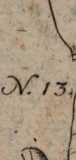 N. 13.